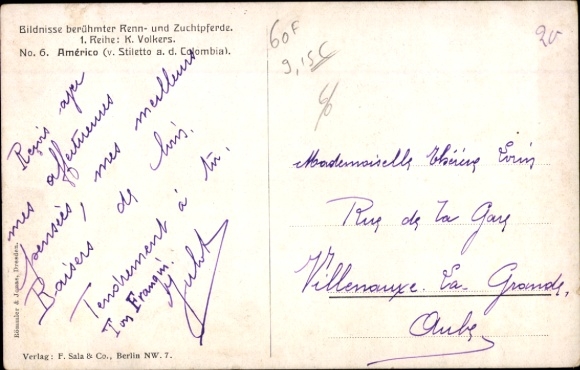 Bildnisse berühmter Renn- und Zuchtpferde.
1. Reihe: K. Volkers.
No. 6. Américo (v. Stiletto a. d. Colombia).
60F
9,15
20
Reçois avec
mes affectueuses
pensées, mes meilleurs
Baisers de
Tendrement à toi.
Ton
Mademoiselle
Rue de La Gare
Villenauxe. La Grande,
Aube
Römmler & Jonas, Dresden.
Verlag: F. Sala & Co., Berlin NW. 7.